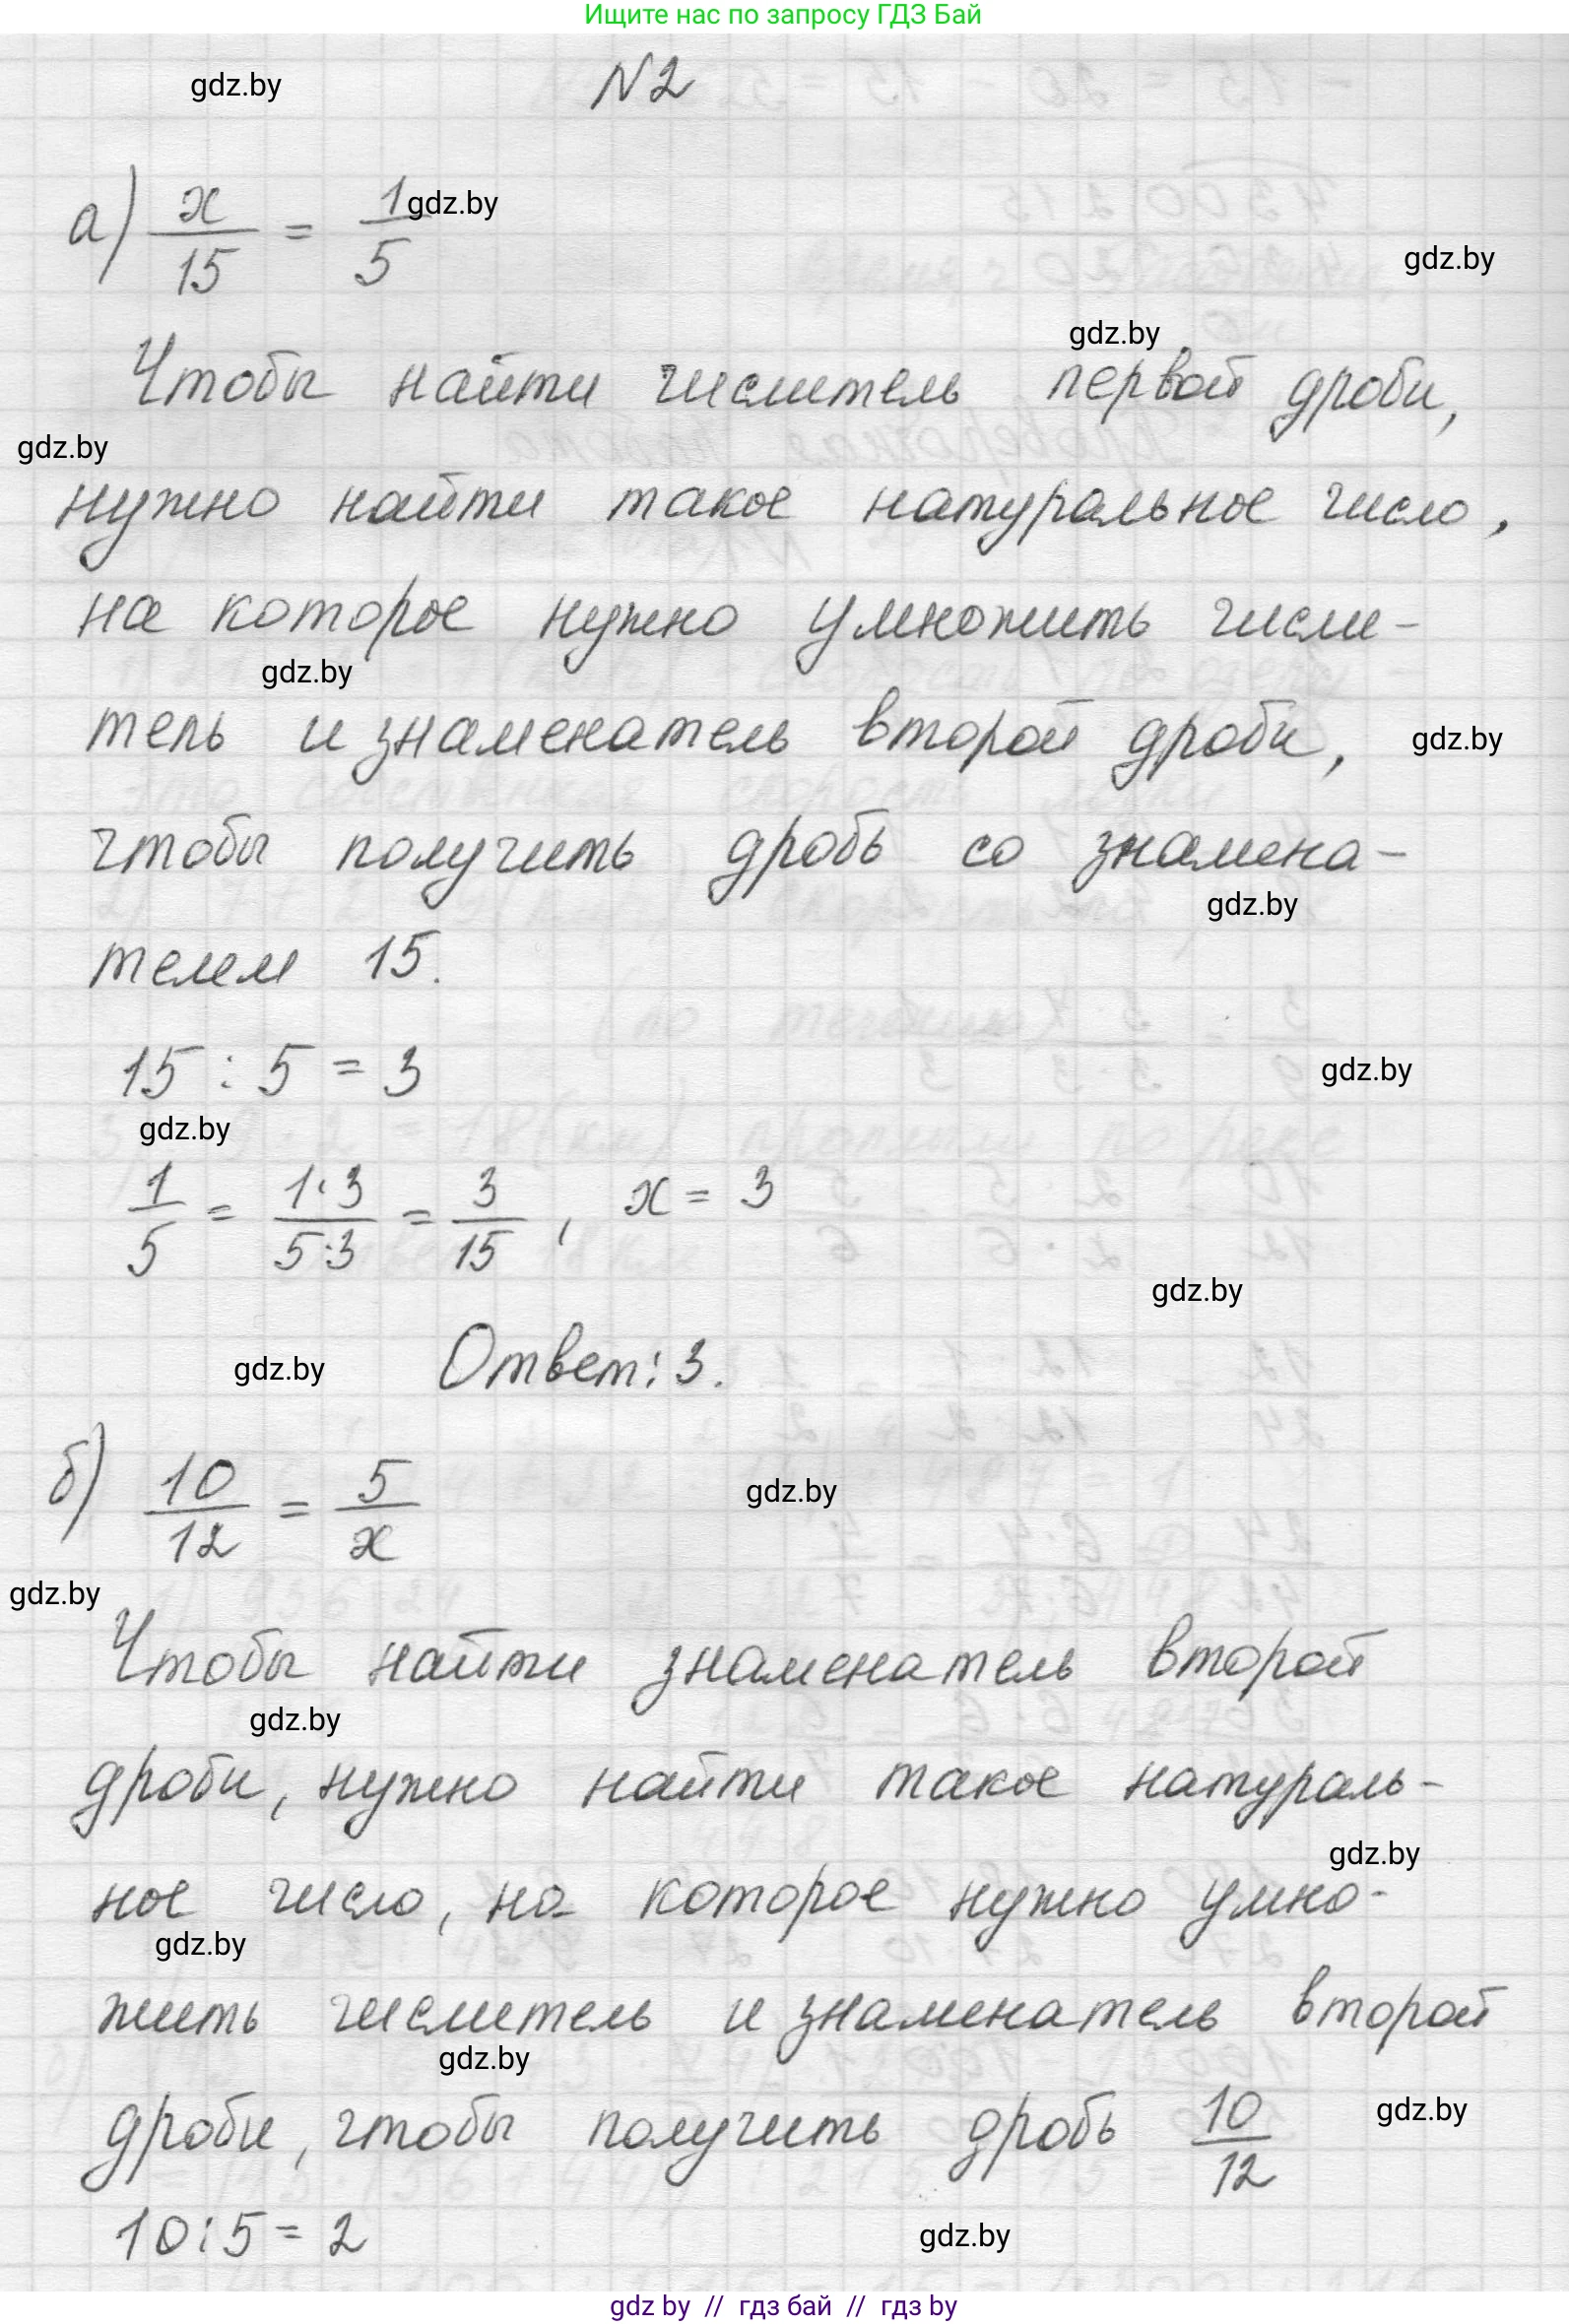 Ищите нас по запросу ГДЗ Бай
gdz.by
N2
а) x/15 = 1/5
gdz.by
gdz.by
gdz.by
Чтобы найти числитель первой дроби,
gdz.by
нужно найти такое натуральное число,
на которое нужно умножить числи-
gdz.by
тель и знаменатель второй дроби,
gdz.by
чтобы получить дробь со знамена-
gdz.by
телем 15.
15 : 5 = 3
gdz.by
gdz.by
1/5 = 1·3/5·3 = 3/15 , x = 3
gdz.by
gdz.by
Ответ: 3.
б) 10/12 = 5/x
gdz.by
gdz.by
Чтобы найти знаменатель второй
gdz.by
дроби, нужно найти такое натураль-
gdz.by
ное число, на которое нужно умно-
gdz.by
жить числитель и знаменатель второй
gdz.by
дроби, чтобы получить дробь 10/12
gdz.by
10:5 = 2
gdz.by
gdz by // гдз бай // гдз by